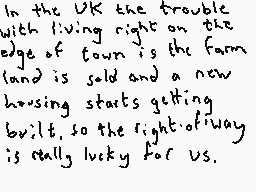 In the UK the trouble
with living right on the
edge of town is the farm
land is sold and a new
housing starts getting
built, so the right-of-way
is really lucky for us.